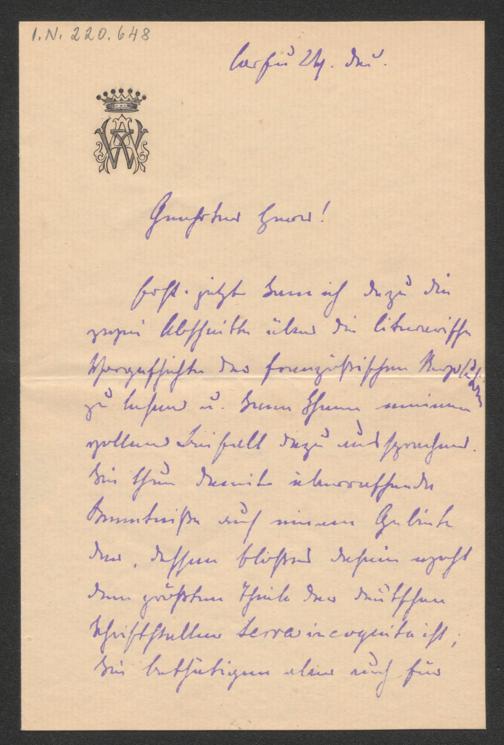 I.N. 220.648
Corfu 24. Dez.
AW
Geehrter Herr!
Erst jetzt kam ich dazu die
zwei Abschnitte über die literarische
Vorgeschichte der französischen Revolution
zu lesen u. kann Ihnen meinen
vollen Beifall dazu aussprechen.
Sie thun damit überraschende
Kenntniße auf einem Gebiete
dar, dessen bloßes Dasein wohl
dem größten Theile der deutschen
Schriftsteller terra incognita ist;
Sie bethätigen aber auch für